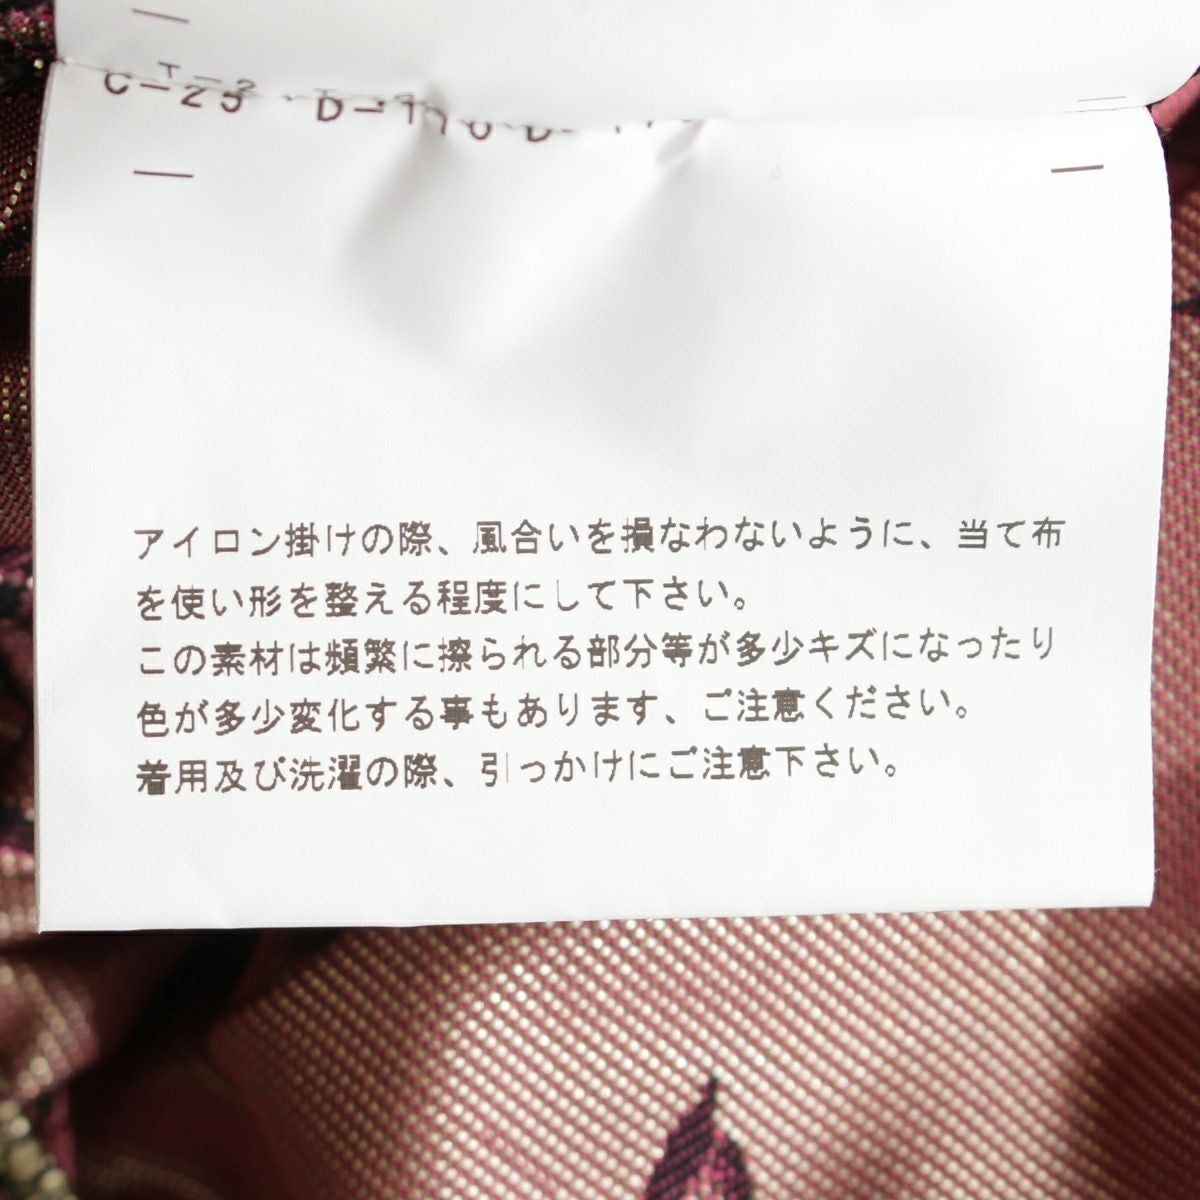 アイロン掛けの際、風合いを損なわないように、当て布
を使い形を整える程度にして下さい。
この素材は頻繁に擦られる部分等が多少キズになったり
色が多少変化する事もあります、ご注意ください。
着用及び洗濯の際、引っかけにご注意下さい。